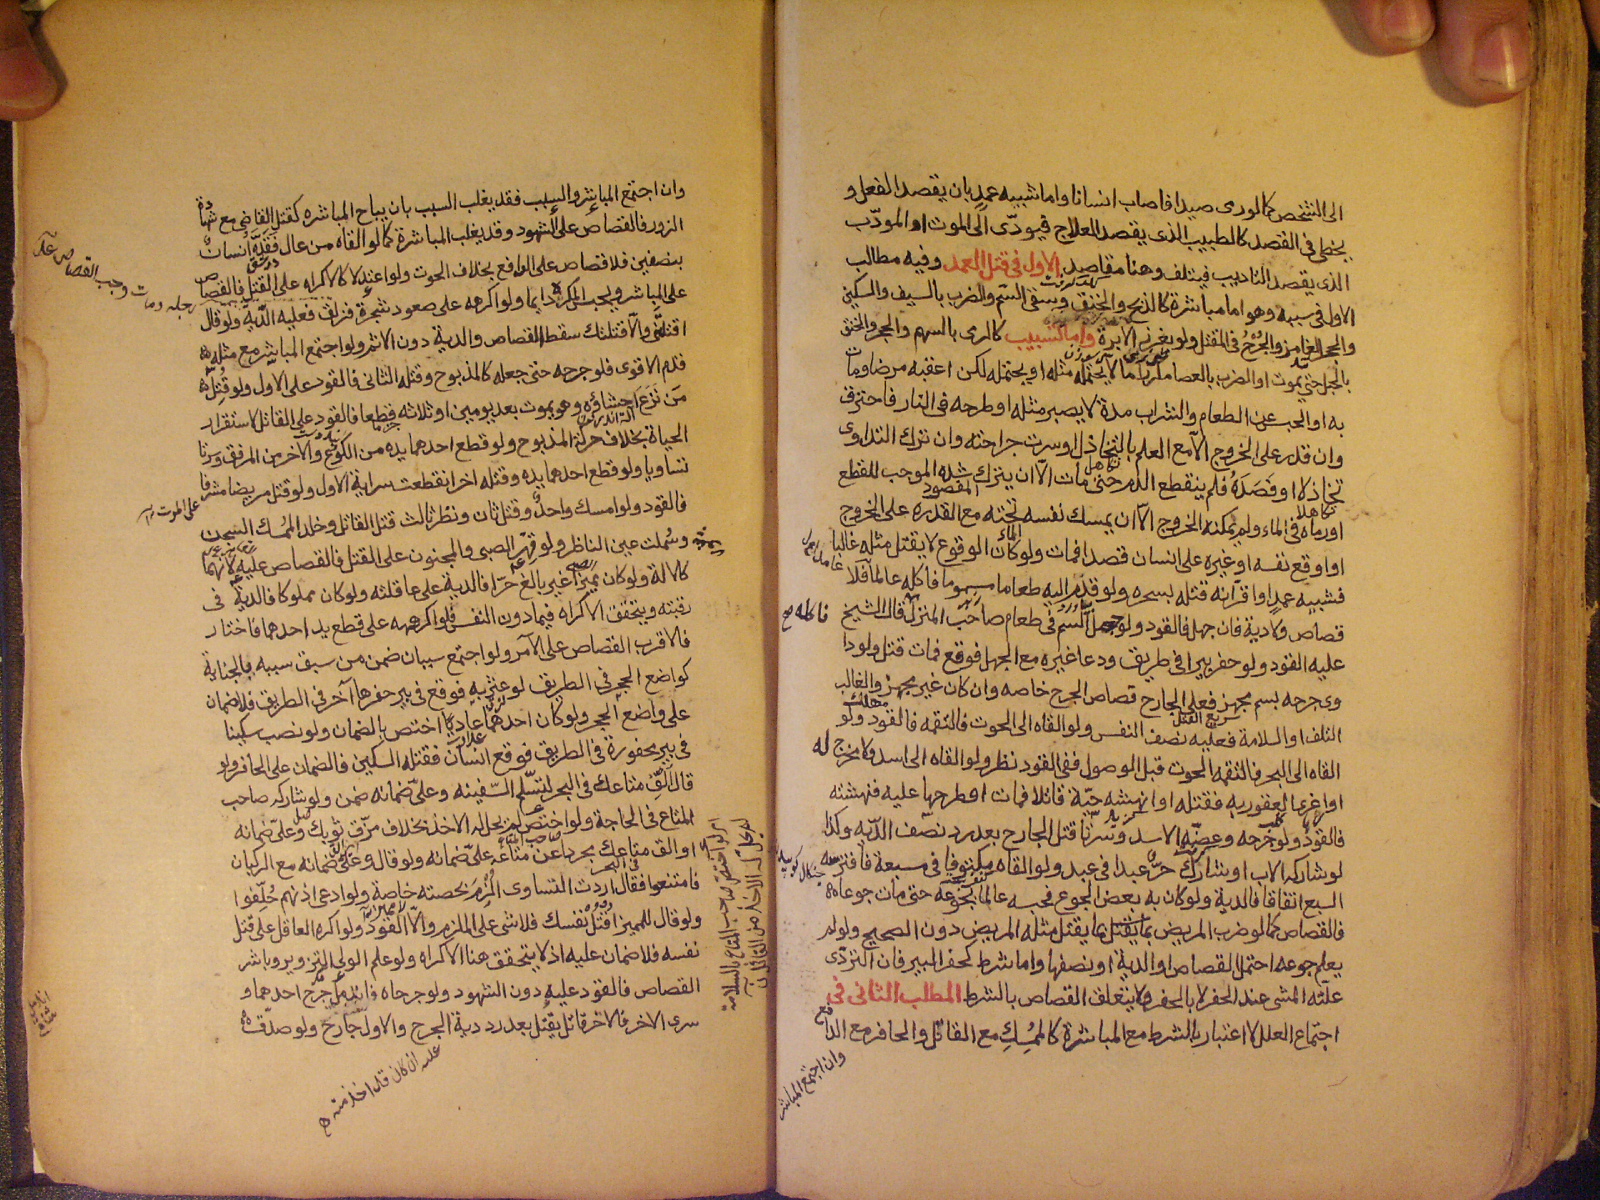 الى الشخص كما لو رمى صيدا فاصاب انسانا واما شبيه عمد بان يقصد الفعل و
يخطى فى القصد كالطبيب الذى يقصد العلاج فيودّى الى الموت او المودّب
الذى يقصد التاديب فيتلف وهنا مقاصد الاول فى قتل العمد وفيه مطالب
الاول فى سببه وهو اما مباشرة كالذبح والخنق وسقى السّم والضرب بالسيف والسكين
والحجر الغامز والجُرْح فى المقتل ولو بغرز الابرة واما تسبيب كالرمى بالسهم والحجر والخنق
بالحبل حتى يموت او الضرب بالعصا مكررا ما لا يحتمله مثله او يحتمله لكن اعقبه مرضا ومات
به او الحبس عن الطعام والشراب مدة لا يصبر مثله او طرحه فى النار فاحترق
وان قدر على الخروج الا مع العلم بالتخاذل او سرت جراحته وان ترك التداوى
تخاذلا او فصده فلم ينقطع الدم حتى مات الا ان يترك شده الموجب للقطع
او رماه فى الماء ولم يمكنه الخروج الا ان يمسك نفسه تحته مع القدره على الخروج
او اوقع نفسه او غيره على انسان قصدا فمات ولو كان الوقوع لا يقتل مثله غالبا
فشبيه عمد او اقرّ انه قتله بسحره ولو قدّم اليه طعاما مسموما فاكله عالما فلا
قصاص ولا دية فان جهل فالقود ولو جعل السّم فى طعام صاحب المنزل قال الشيخ
عليه القود ولو حفر بيرا فى طريق ودعا غيره مع الجهل فوقع فمات قتل ولو دا
وى جرحه بسم مجهز فعلى الجارح قصاص الجرح خاصه وان كان غير مجهز والغالب
التلف او السلامة فعليه نصف النفس ولو القاه الى الحوت فالتقمه فالقود ولو
القاه الى البحر فالتقمه الحوت قبل الوصول ففى القود نظر ولو القاه الى اسد ولا مخرج له
او اغرى العقور به فقتله او انهشه حيّة قاتلا فمات او طرحها عليه فنهشته
فالقود ولو جرحه وعضّه الاسد وسرتا قتل الجارح بعد رد نصف الدّية وكذا
لو شاركه الاب او شارك حرّ عبدا فى عبد ولو القاه مكتوفا فى مسبعة فافترسه
السبع اتفاقا فالدية ولو كان به بعض الجوع فحبسه عالما بجوعه حتى مات جوعا
فالقصاص كما لو ضرب المريض بما يقتل مثله المريض دون الصحيح ولو لم
يعلم جوعه احتمل القصاص او الدية او نصفها واما شرط كحفر البير فان التردّى
علّته المشى عند الحفر لا بالحفر ولا يتعلق القصاص بالشرط المطلب الثانى فى
اجتماع العلل لا اعتبار بالشرط مع المباشرة كالممسِك مع القاتل والحافر مع الدافع
وان اجتمع المباشر
وان اجتمع المباشر والسبب فقد يغلب السبب بان يباح المباشره كقتل القاضى مع شهادة
الزور فالقصاص على الشهود وقد يغلب المباشرة كما لو القاه من عال فقدّه انسان
بنصفين فلا قصاص على الواقع بخلاف الحوت ولو اعتدلا كالاكراه على القتل فالقصاص
على المباشر ويحبس المكره دايما ولو اكرهه على صعود شجرة فزلق فعليه الدّية ولو قال
اقتلنى والا قتلتك سقط القصاص والدية دون الاثم ولو اجتمع المباشر مع مثله
قدم الاقوى فلو جرحه حتى جعله كالمذبوح وقتله الثانى فالقود على الاول ولو قتل
من نزع احشاؤه وهو يموت بعد يومين او ثلاثه قطعا فالقود على القاتل لاستقرار
الحياة بخلاف حركة المذبوح ولو قطع احدهما يده من الكوع والاخر من المرفق وسرتا
تساويا ولو قطع احدهما يده وقتله اخر انقطعت سراية الاول ولو قتل مريضا مشرفا
فالقود ولو امسك واحد وقتل ثان ونظر ثالث قتل القاتل وخلد الممسك السجن
وسُملت عين الناظر ولو قهر الصبى والمجنون على القتل فالقصاص عليه لانهما
كالالة ولو كان مميزا غير بالغ حرّ فالدية على عاقلته ولو كان مملوكا فالدية فى
رقبته ويتحقق الاكراه فيما دون النفس فلو اكرهه على قطع يد احدهما فاختار
فالاقرب القصاص على الآمر ولو اجتمع سببان ضمن من سبق سببه بالجناية
كواضع الحجر فى الطريق لو عثر به فوقع فى بير حفرها آخر فى الطريق فالضمان
على واضع الحجر ولو كان احدهما عاديا اختص بالضمان ولو نصب سكينا
فى بير محفورة فى الطريق فوقع انسان فقتله السكين فالضمان على الحافر ولو
قال الق متاعك فى البحر لتسلم السّفينه وعلىّ ضمانه ضمن ولو شاركه صاحب
المتاع فى الحاجة ولو اختص لم يحل له الاخذ بخلاف مزّق ثوبك وعلىّ ضمانه
او الق متاعك مجردا عن علىّ ضمانه ولو قال وعلىّ ضمانه مع الركبان
فامتنعوا فقال اردت التساوى اُلزم بحصته خاصة ولو ادعى اذنهم حُلّفوا
ولو قال للمميز اقتل نفسك فلا شى على الملزم والّا القود ولو اكره العاقل على قتل
نفسه فلا ضمان عليه اذ لا يتحقق هنا الاكراه ولو علم الولى التزوير وباشر
القصاص فالقود عليه دون الشهود ولو جرحاه فاندمل جرح احدهما و
سرى الاخر فالاخر قاتل يقتل بعد رد دية الجرح والاول جارح ولو صدّق